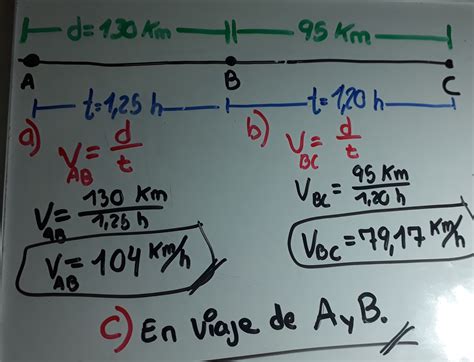 d = 130 Km 95 Km
A B C
t = 1,25 h t = 1,20 h
a) V_AB = d/t
b) V_BC = d/t
V_AB = 130 Km / 1,25 h
V_BC = 95 Km / 1,20 h
V_AB = 104 Km/h
V_BC = 79,17 Km/h
c) En Viaje de A y B.